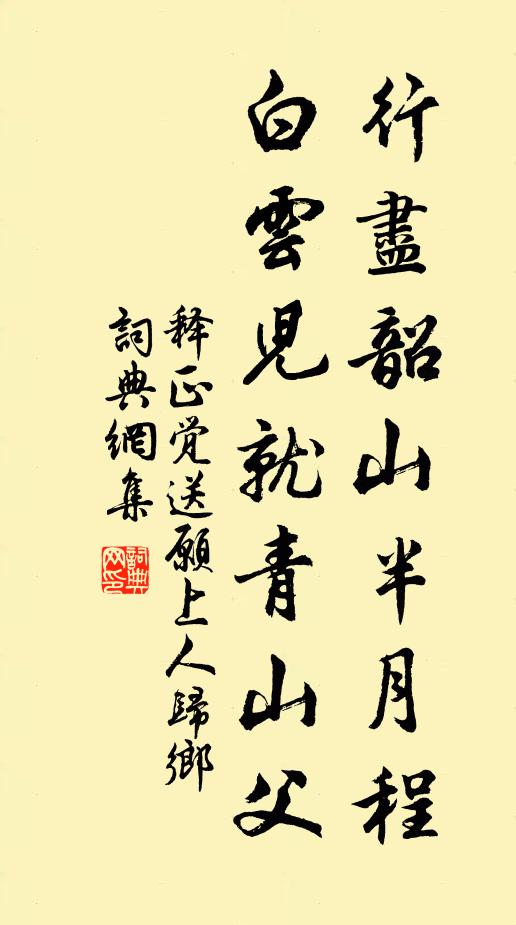 行盡韶山半月程
白雲児就青山父
释正觉送願上人歸鄉
詞典網集
詞典網印